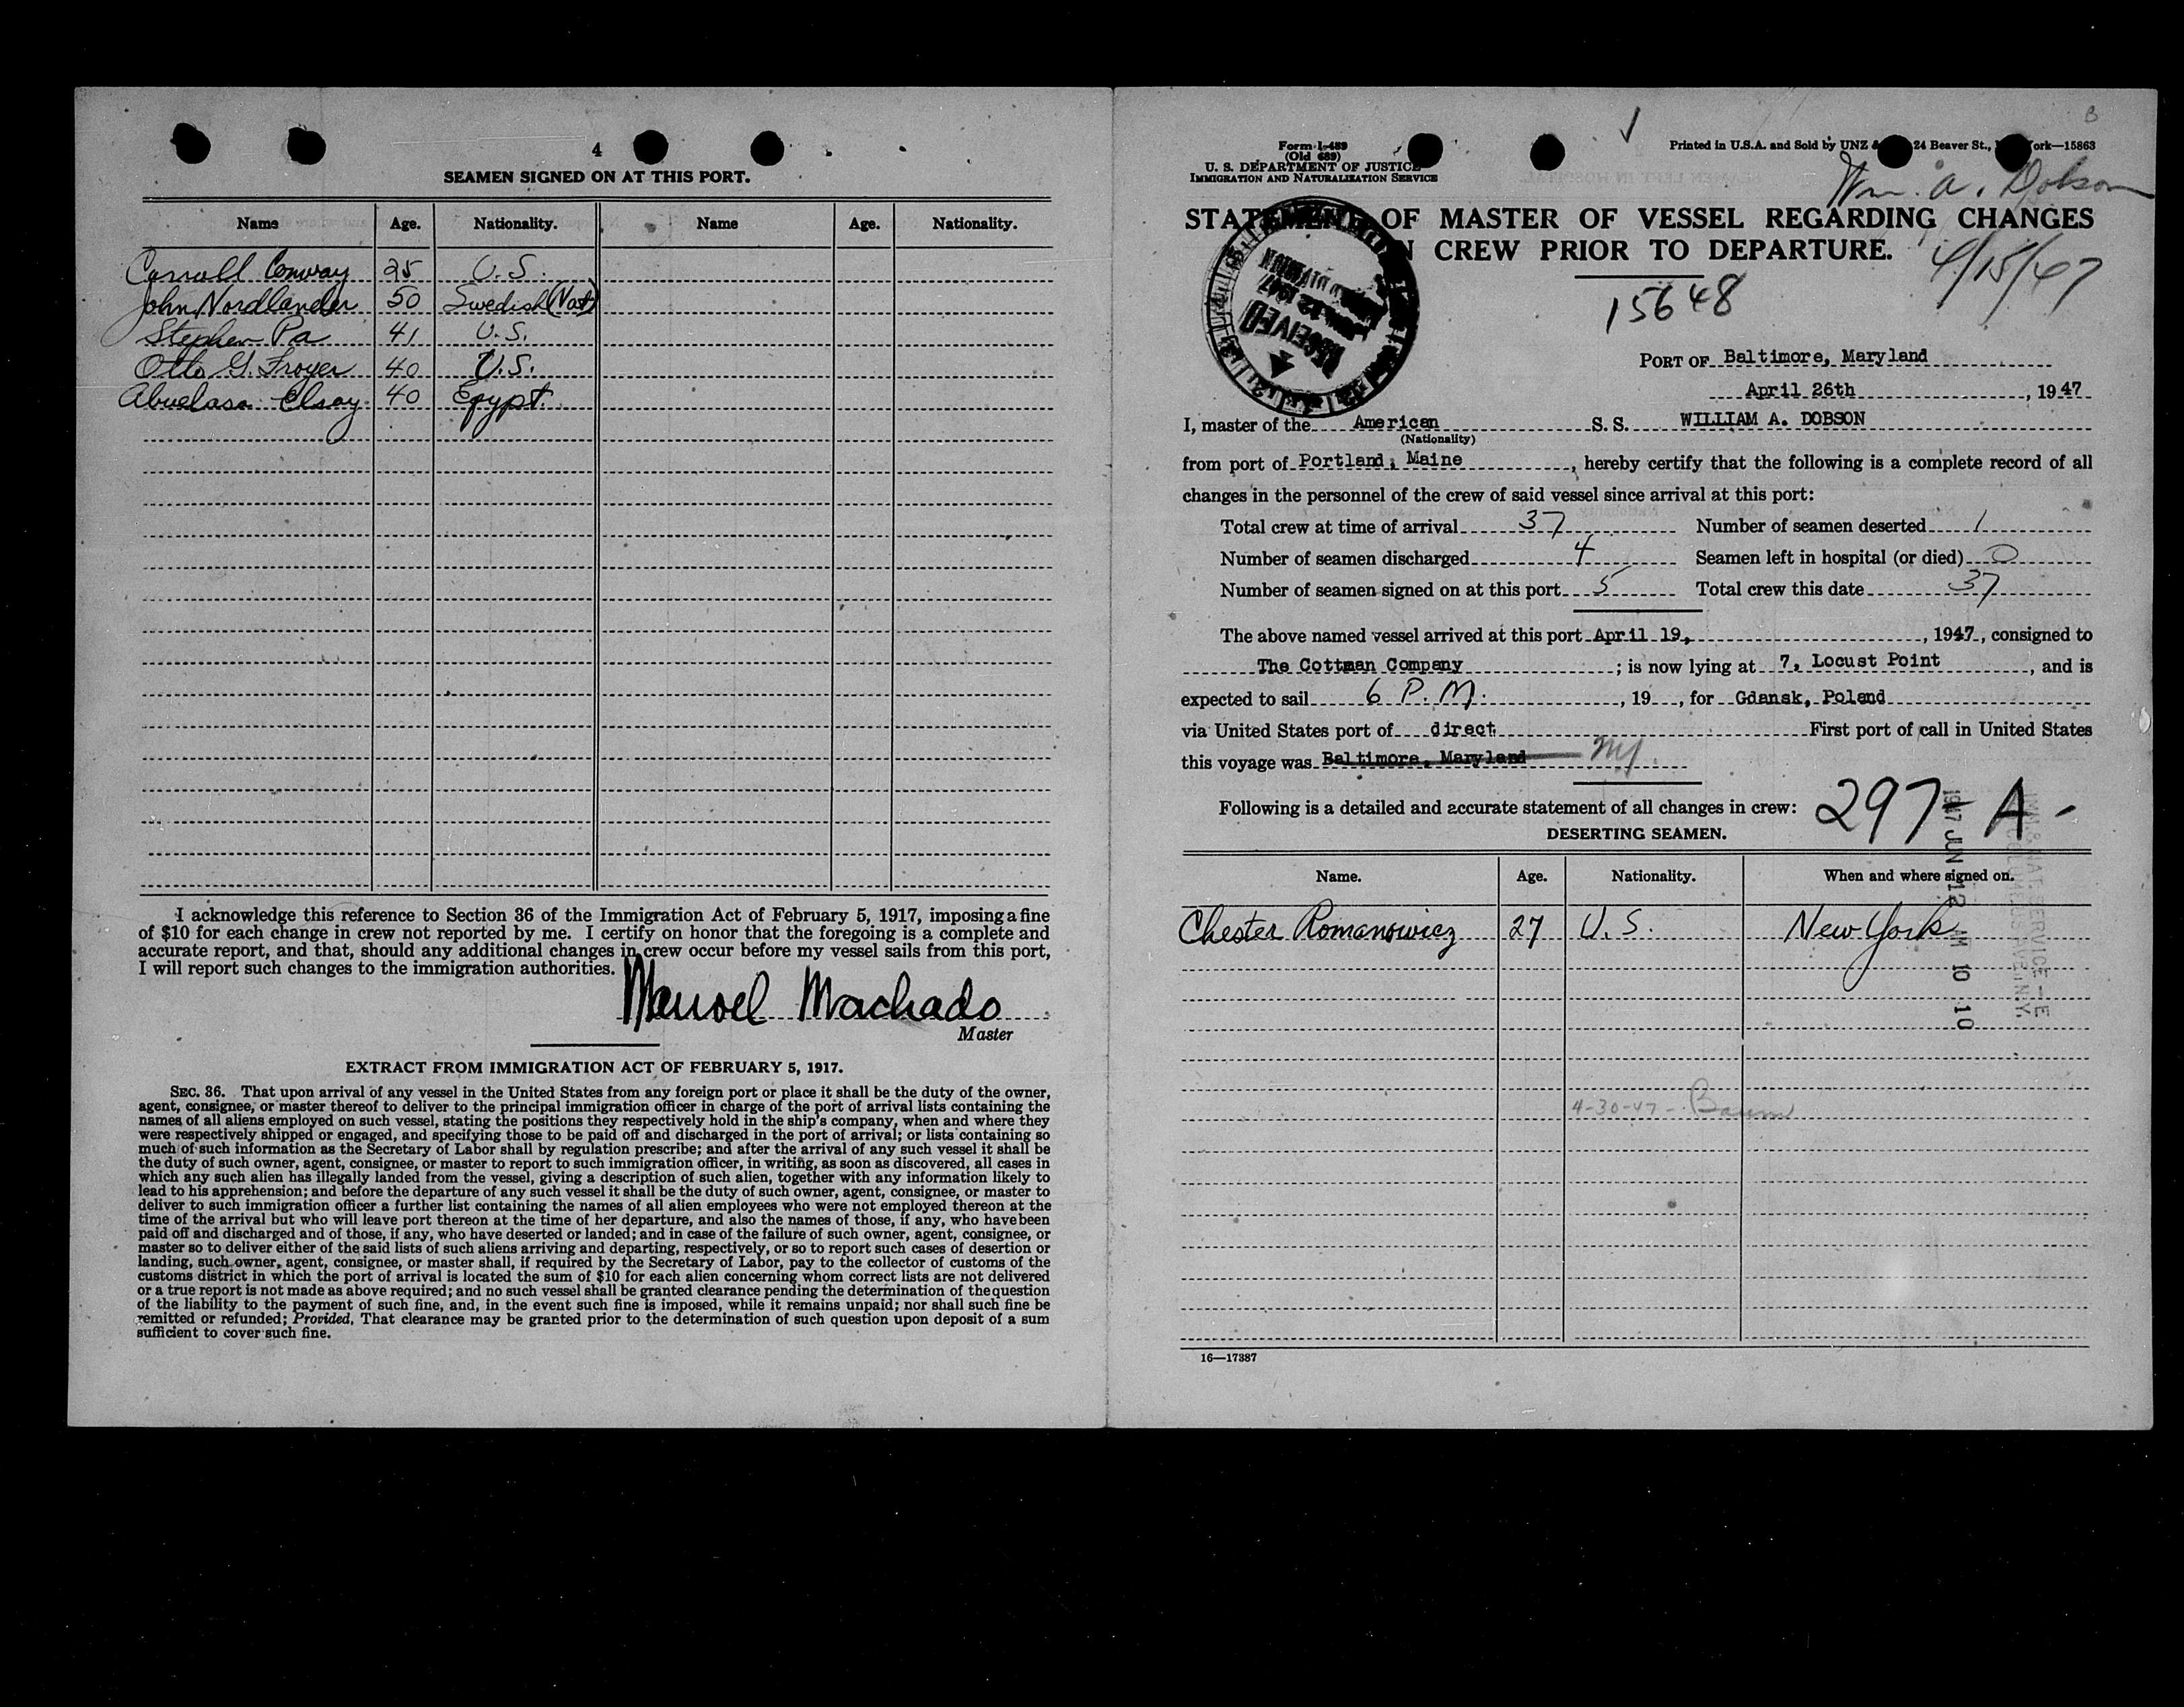 4
SEAMEN SIGNED ON AT THIS PORT.
Name Age. Nationality. Name Age. Nationality.
Carroll Conway 25 U.S.
John Nordlander 50 Swedish (Nat)
Stephen Pa 41 U.S.
Otto G. Troyer 40 U.S.
Abuelasa Elsay 40 Egypt.
I acknowledge this reference to Section 36 of the Immigration Act of February 5, 1917, imposing a fine
of $10 for each change in crew not reported by me. I certify on honor that the foregoing is a complete and
accurate report, and that, should any additional changes in crew occur before my vessel sails from this port,
I will report such changes to the immigration authorities.
Manoel Machado
Master
EXTRACT FROM IMMIGRATION ACT OF FEBRUARY 5, 1917.
SEC. 36. That upon arrival of any vessel in the United States from any foreign port or place it shall be the duty of the owner,
agent, consignee, or master thereof to deliver to the principal immigration officer in charge of the port of arrival lists containing the
names of all aliens employed on such vessel, stating the positions they respectively hold in the ship's company, when and where they
were respectively shipped or engaged, and specifying those to be paid off and discharged in the port of arrival; or lists containing so
much of such information as the Secretary of Labor shall by regulation prescribe; and after the arrival of any such vessel it shall be
the duty of such owner, agent, consignee, or master to report to such immigration officer, in writing, as soon as discovered, all cases in
which any such alien has illegally landed from the vessel, giving a description of such alien, together with any information likely to
lead to his apprehension; and before the departure of any such vessel it shall be the duty of such owner, agent, consignee, or master to
deliver to such immigration officer a further list containing the names of all alien employees who were not employed thereon at the
time of the arrival but who will leave port thereon at the time of her departure, and also the names of those, if any, who have been
paid off and discharged and of those, if any, who have deserted or landed; and in case of the failure of such owner, agent, consignee, or
master so to deliver either of the said lists of such aliens arriving and departing, respectively, or so to report such cases of desertion or
landing, such owner, agent, consignee, or master shall, if required by the Secretary of Labor, pay to the collector of customs of the
customs district in which the port of arrival is located the sum of $10 for each alien concerning whom correct lists are not delivered
or a true report is not made as above required; and no such vessel shall be granted clearance pending the determination of the question
of the liability to the payment of such fine, and, in the event such fine is imposed, while it remains unpaid; nor shall such fine be
remitted or refunded; Provided, That clearance may be granted prior to the determination of such question upon deposit of a sum
sufficient to cover such fine.
B
Form I-489
(Old 689)
U. S. DEPARTMENT OF JUSTICE
IMMIGRATION AND NATURALIZATION SERVICE
Printed in U.S.A. and Sold by UNZ & 24 Beaver St., ork—15863
Wm. A. Dobson
STATEMENT OF MASTER OF VESSEL REGARDING CHANGES
IN CREW PRIOR TO DEPARTURE.
4/15/47
15648
RECEIVED
PORT OF Baltimore, Maryland
April 26th, 1947
I, master of the American S. S. WILLIAM A. DOBSON
(Nationality)
from port of Portland, Maine, hereby certify that the following is a complete record of all
changes in the personnel of the crew of said vessel since arrival at this port:
Total crew at time of arrival 37 Number of seamen deserted 1
Number of seamen discharged 4 Seamen left in hospital (or died) 0
Number of seamen signed on at this port 5 Total crew this date 37
The above named vessel arrived at this port April 19, , 1947, consigned to
The Cottman Company ; is now lying at 7, Locust Point , and is
expected to sail 6 P.M. , 19 , for Gdansk, Poland
via United States port of direct. First port of call in United States
this voyage was Baltimore, Maryland NY.
Following is a detailed and accurate statement of all changes in crew: 297-A-
DESERTING SEAMEN.
Name. Age. Nationality. When and where signed on.
Chester Romanowicz 27 U.S. New York
1947 JUN 12 AM 10 10
4-30-47 - Baum
16—17387